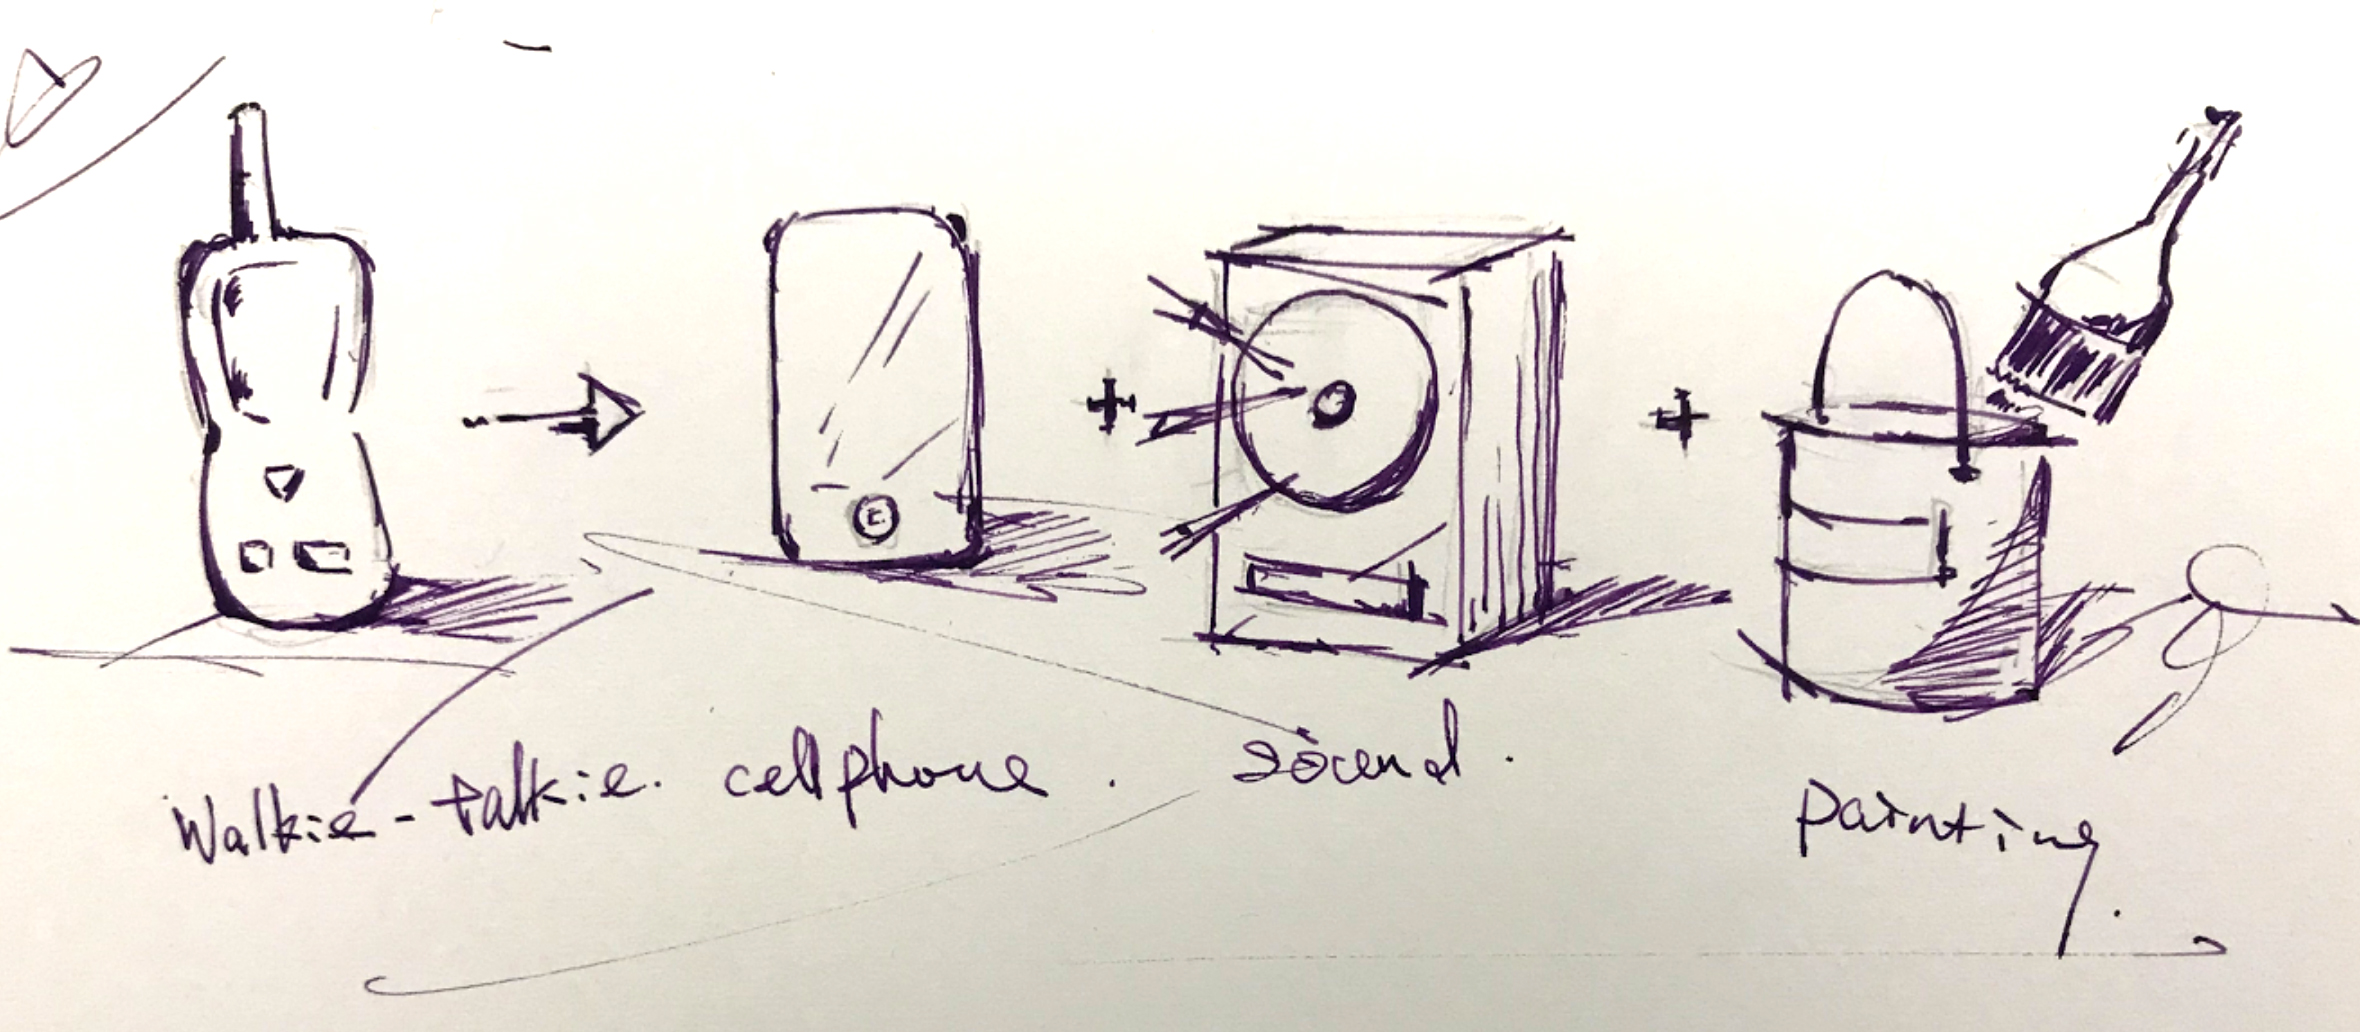 Walkie-talkie. cellphone. sound.
painting.